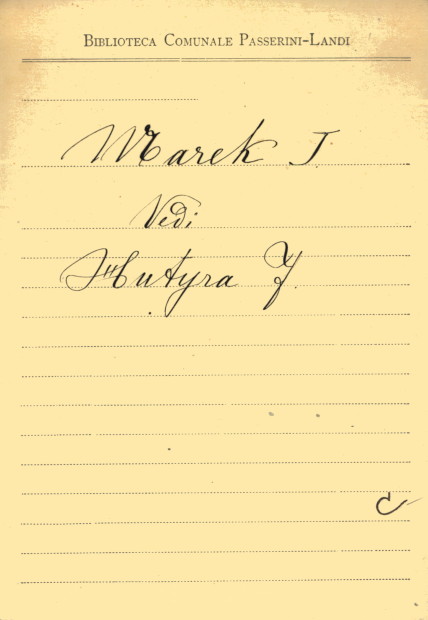 BIBLIOTECA COMUNALE PASSERINI-LANDI
Marek J.
Vedi
Hutyra F.
C